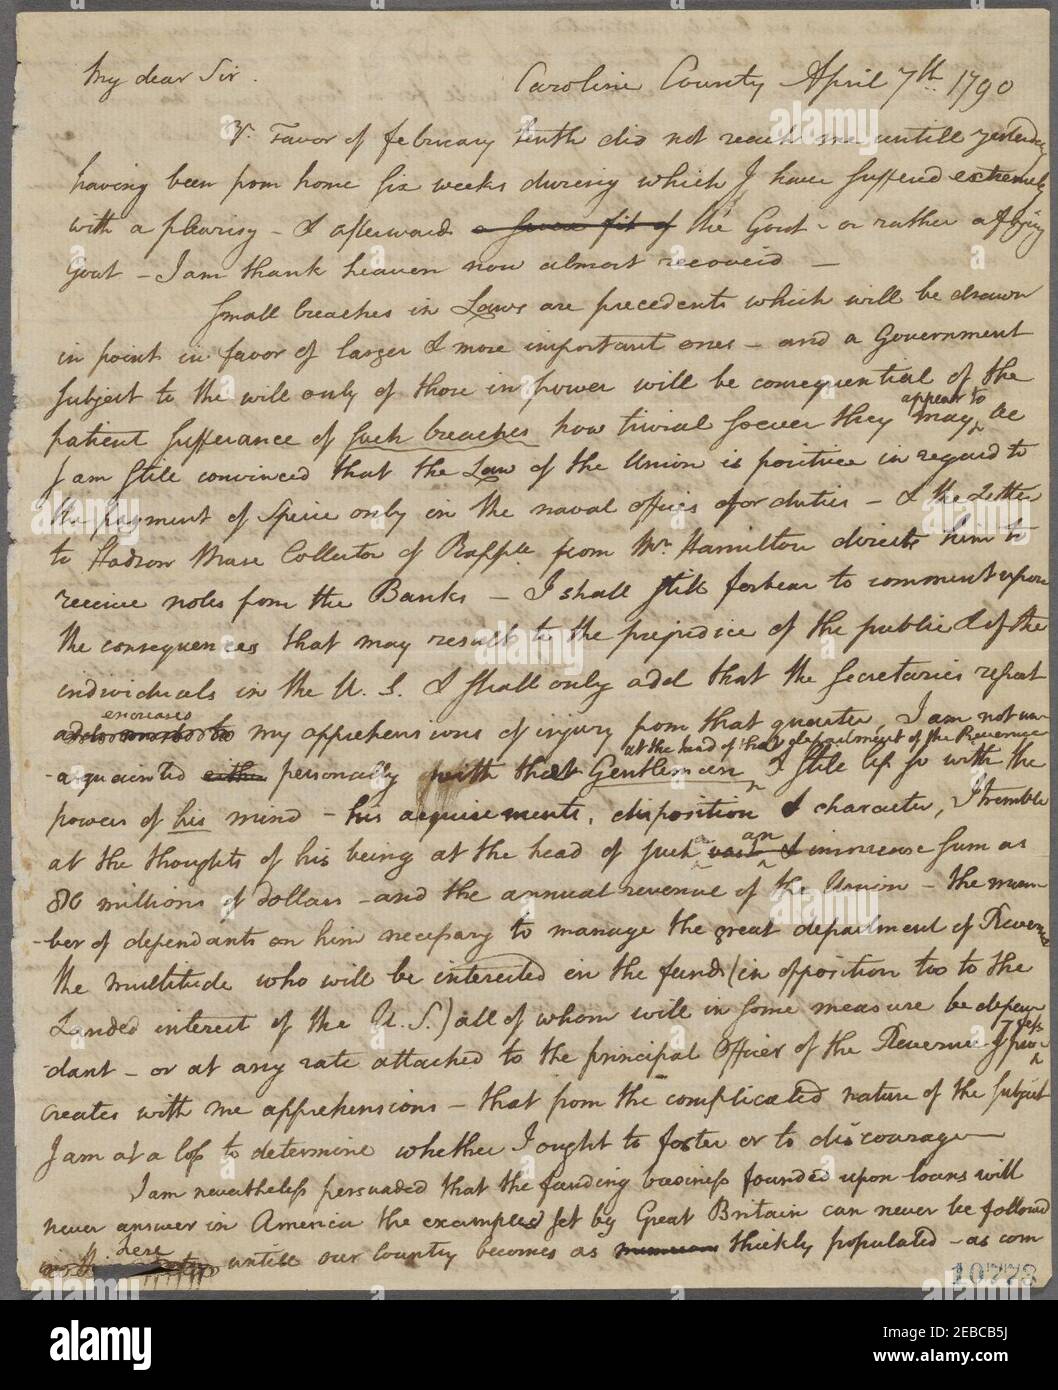 My dear Sir.
Caroline County April 7th. 1790
Yr. Favor of february tenth did not reach me untill yesterday
having been from home six weeks during which I have suffered extremely
with a pleurisy - & afterward a severe fit of the Gout - or rather a flying
Gout - I am thank heaven now almost recoverd -
Small breaches in Laws are precedents which will be drawn
in point in favor of larger & more important ones - and a Government
subject to the will only of those in power will be consequential of the
patient sufferance of such breaches how trivial soever they may appear to be
I am still convinced that the Law of the Union is positive in regard to
the payment of Specie only in the naval offices for duties - & the Letter
to Hudson Muse Collector of Rapph. from Mr. Hamilton directs him to
receive notes from the Banks - I shall still forbear to comment upon
the consequences that may result to the prejudice of the public & of the
individuals in the U. S. & shall only add that the Secretaries report
encreases my apprehensions of injury from that quarter, I am not un-
-aquainted either personally with that Gentleman at the head of that department of the Revenue & still less so with the
powers of his mind - his acquirements, disposition & character, I tremble
at the thoughts of his being at the head of such an immense sum as
86 millions of dollars - and the annual revenue of the Union - the num-
-ber of dependants on him necessary to manage the great department of Revenue
the multitude who will be interested in the funds (in opposition too to the
Landed interest of the U. S.) all of whom will in some measure be depen-
-dant - or at any rate attached to the principal Officer of the Revenue I profess
creates with me apprehensions - that from the complicated nature of the subject
I am at a loss to determine whether I ought to foster or to discourage
I am nevertheless persuaded that the funding business founded upon loans will
never answer in America the examples set by Great Britain can never be followed
here untill our Country becomes as thickly populated - as com
10773
alamy
Image ID: 2EBCB5J
www.alamy.com